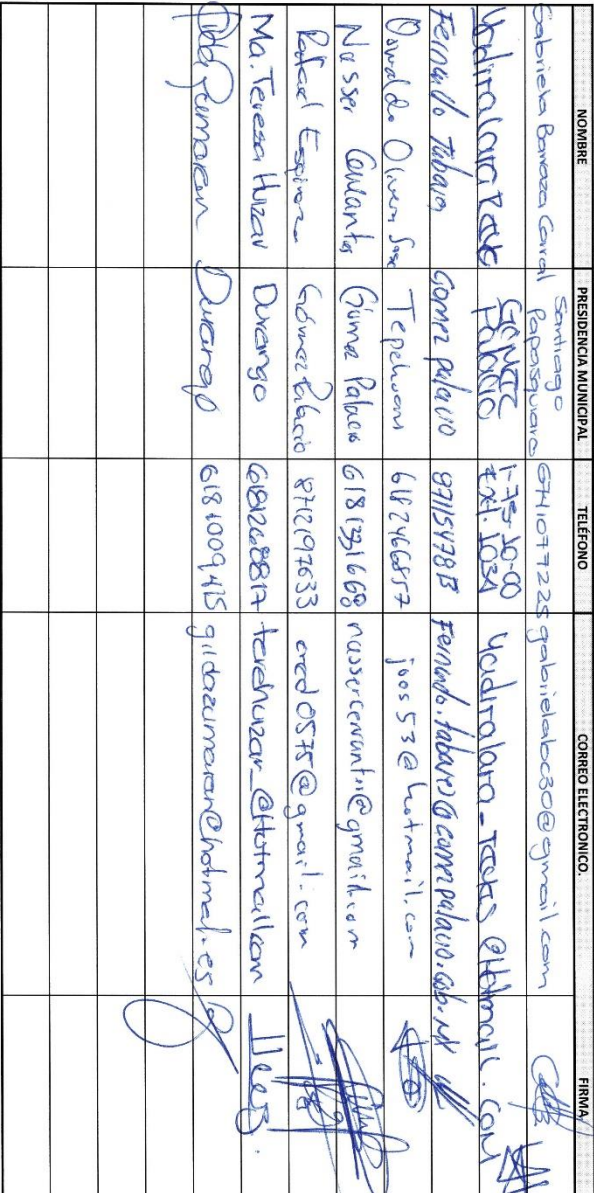 NOMBRE PRESIDENCIA MUNICIPAL TELÉFONO CORREO ELECTRONICO. FIRMA
Gabriela Barraza Caral Santiago Papasquiaro 6741077225 gabrielabc30@gmail.com
Yadira Lara Gómez Palacio 1-75-10-00 Ext. 1034
Fernando Tabares Gomez palacio 8711547813 Fernando.tabares@gomezpalacio.gob.mx
Osvaldo Olivas Sosa Tepehuans 6182466857 joos53@hotmail.com
Nasser Cervantes Gómez Palacio 6181331668 nassercervantes@gmail.com
Rafael Espinoza Gómez Palacio 8712197633 0575@gmail.com
Ma. Teresa Huizar Durango 6181268817 terehuizar_@Hotmail.com
Gilda Zumaran Durango 6181009415 gildazumaran@hotmail.es